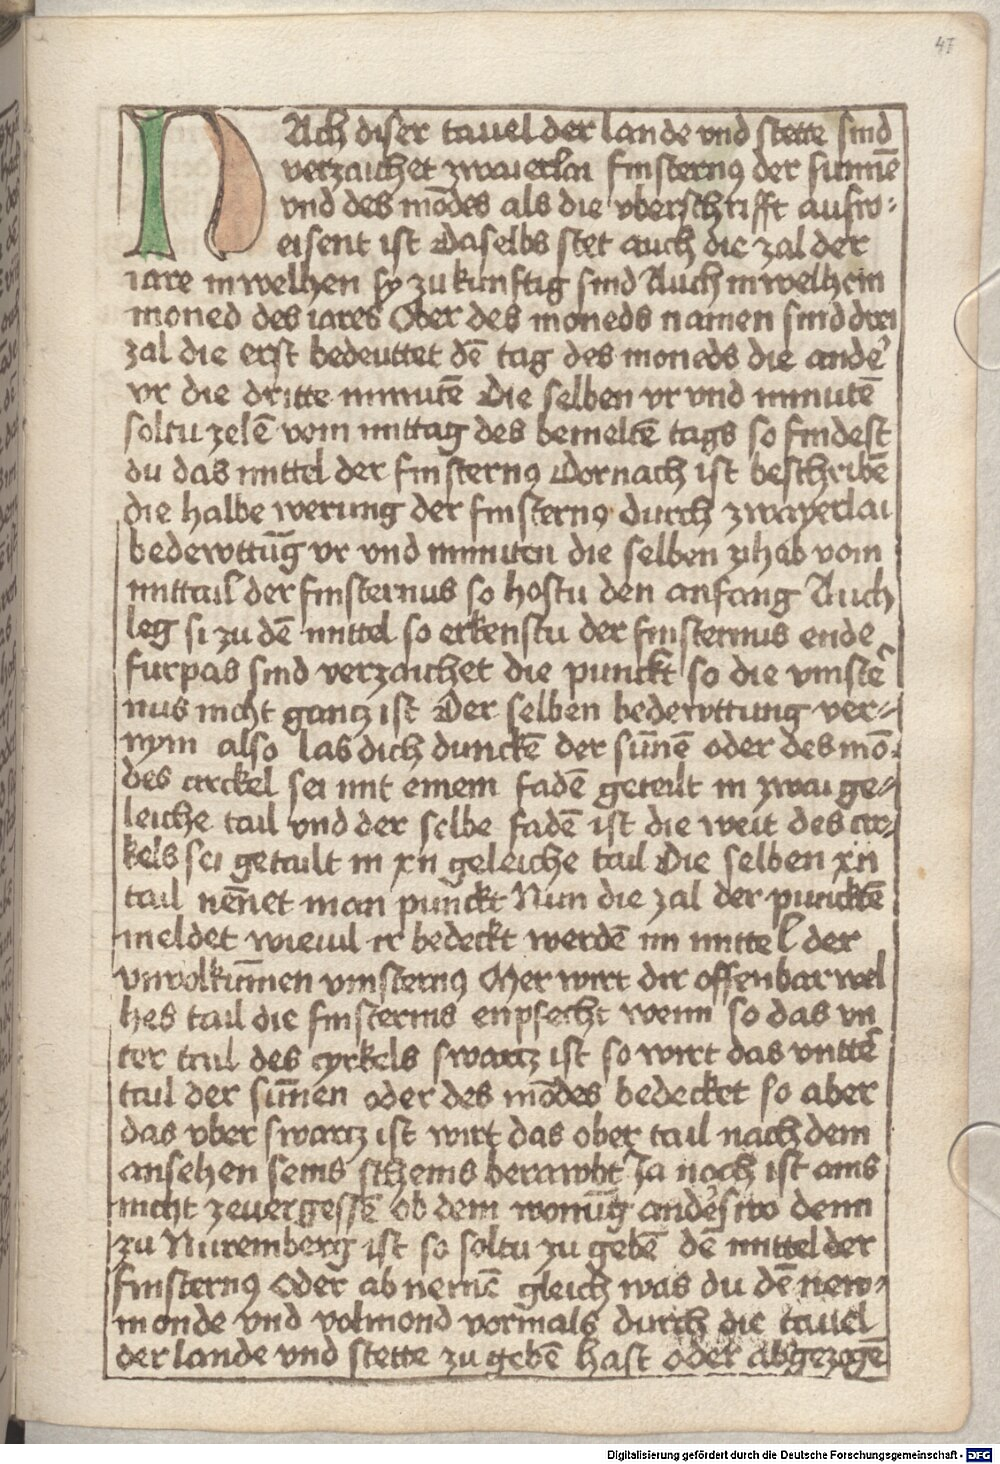 47
NAch diser tauel der lande vnd stette sind
verzaichet zwaierlai finsternꝰ der sunnē
vnd des mōdes als die vberschrifft aufw-
eisent ist Daselbs stet auch die zal der
iare in welhen sy zukunftig sind Auch in welhem
moned des iares Ober des moneds namen sind drei
zal die erst bedeuttet dē tag des moneds die ander
vr die dritte minutē Die selben vr vnd minutē
soltu zelē vom mittag des bemeltē tags so findest
du das mittel der finsternꝰ Dornach ist beschribē
die halbe werung der finsternꝰ durch zwayerlai
bedewttūg vr vnd minuten die selben zihab vom
mittail der finsternus so hostu den anfang Auch
leg si zu dē mittel so erkenstu der finsternus ende
furpas sind verzaichet die punckt so die vinstē
nus nicht gantz ist Der selben bedewttung ver-
nym also las dich dunckē der sūnē oder des mō-
des circkel sei mit einem fadē geteilt in zwai ge-
leiche tail vnd der selbe fadē ist die weit des cir-
kels sei getailt in xii geleiche tail Die selben xii
tail nēnet man punckt Nun die zal der puncktē
meldet wieuil ir bedeckt werdē im mittel der
vnuolkūmen vinsternꝰ Mer wirt dir offenbar wel
hes tail die finsternis enpfecht wenn so das vn
ter tail des cyrkels swartz ist so wirt das vntter
tail der sūnen oder des mōdes bedecket so aber
das vber swartz ist wirt das ober tail nach dem
ansehen seins scheins berawbt Ja noch ist ains
nicht zeuergessē ob dem wonūg anderswo denn
zu Nuremberg ist so soltu zu gebē dē mittel der
finsternꝰ Oder ab nemē gleich was du dē new-
monde vnd volmond vormals durch die tauel
der lande vnd stette zu gebē hast oder abgezogē
Digitalisierung gefördert durch die Deutsche Forschungsgemeinschaft - DFG